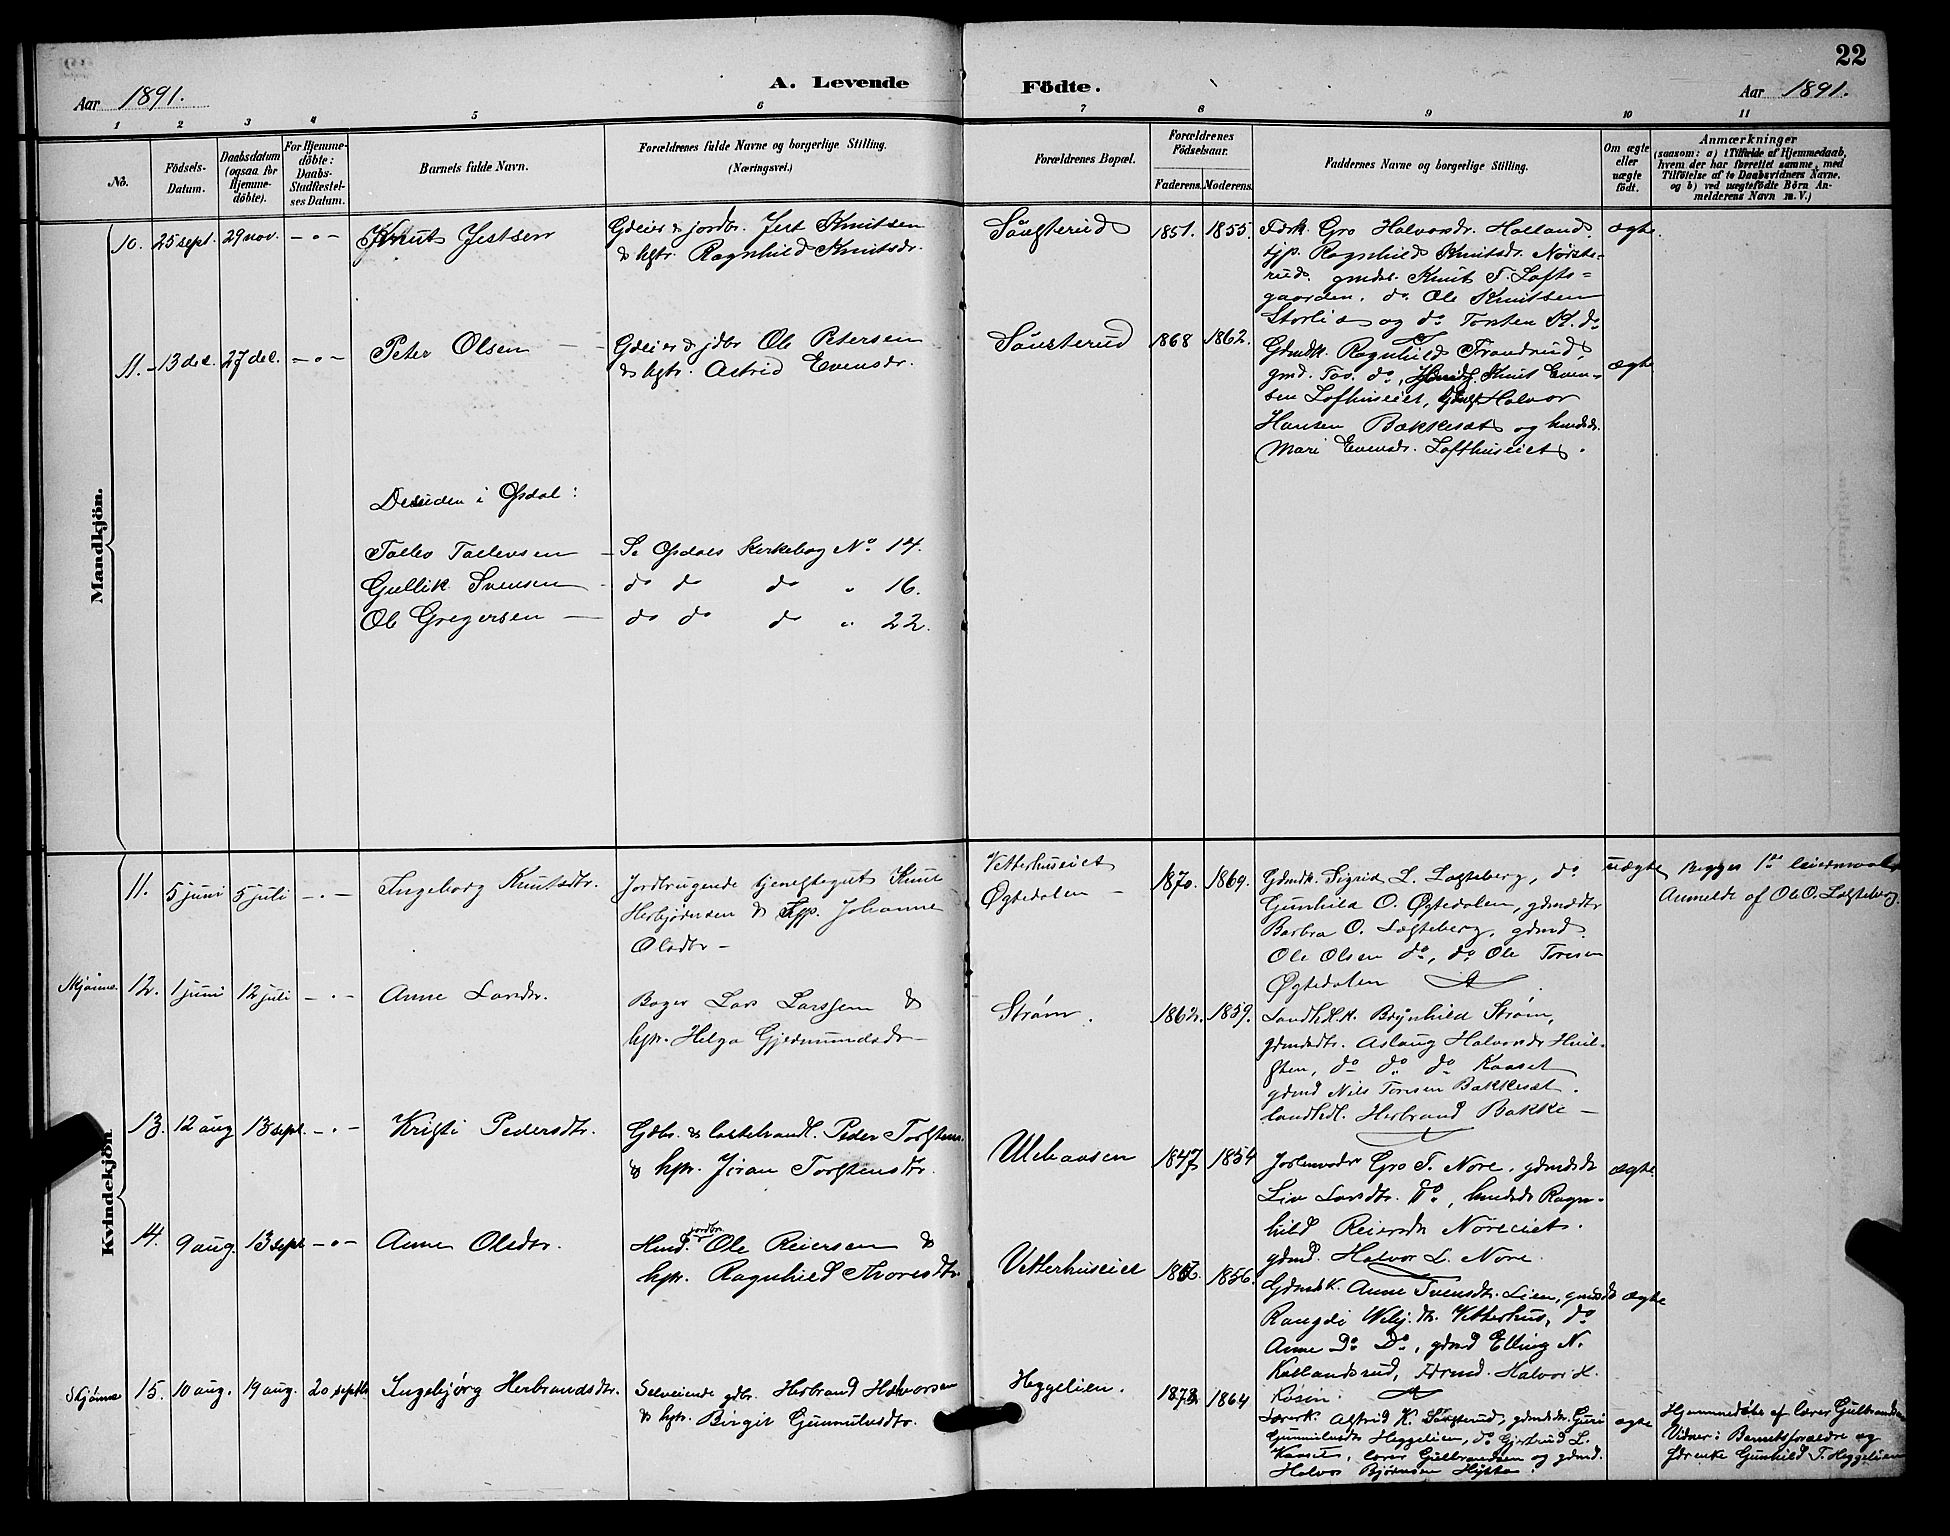 22
A. Levende Födte.
Aar 1891.
Aar 1891.
1 2 3 4 5 6 7 8 9 10 11
No.
Födsels-
Datum.
Daabsdatum
(ogsaa for
Hjemme-
döbte).
For Hjemme-
döbte:
Daabs-
Stadfæstel-
ses Datum.
Barnets fulde Navn.
Forældrenes fulde Navne og borgerlige Stilling.
(Næringsvei.)
Forældrenes Bopæl.
Forældrenes
Födselsaar.
Faderens. Moderens.
Faddernes Navne og borgerlige Stilling.
Om ægte
eller
uægte
födt.
Anmærkninger
(saasom: a) i Tilfælde af Hjemmedaab,
hvem der har forrettet samme, med
Tilföielse af to Daabsvidners Navne.
og b) ved uægtefödte Börn An-
melderens Navn m. V.)
Mandkjön.
10. 25 sept. 29 nov. - " - Knut Jestsen
Gdeier & jordbr. Jest Knutsen
& hstr. Ragnhild Knutsdr.
1851. 1855.
Gro Halvorsdr. Haaland
Ragnhild Knutsdr. Nørste-
rud. gmdsr. Knut T. Lofts-
gaarden, do Ole Knutsen
Storlia og do Torsten K. do
ægte.
11. 13 dec. 27 dec. - " - Peter Olsen
Gdeier & jdbr Ole Petersen
& hstr. Astrid Evensdr.
1868 1862.
Ragnhild Trondrud,
gmd. Tov. do, Knut Even-
sen Lofthuseiet, Halvor
Hansen Bækkesæt og
Mari Evensdr. Lofthuseiet.
ægte
Desuden i Opdal:
Tollev Tollevsen - Se Opdals Kirkebog No 14.
Gullik Svensen - do do do " 16.
Ole Gregersen - do do do " 22.
Kvindekjön
11. 5 juni 5 juli - " - Ingeborg Knutsdtr.
Jordbrugende Knut
Herbjørnsen & Johanne
Olsdtr -
Vetterhuseiet
Øgtedalen -
1870. 1869.
Gdmdk. Sigrid L. Løgteberg, do
Gunhild O. Øgtedalen, gdmddtr
Barbra O. Løgteberg, gdmd
Ole Olsen do, do Ole Toresen
Øgtedalen
uægte
Begges 1ste leiermaal
Anmeldt af Ole O. Løgteberg.
Skjønne. 12. 1 juni 12 juli - " - Anne Larsdtr.
Bager Lars Larssen &
hstr. Helga Gjermundsdr -
Strøm.
1862. 1859.
Landhdl.k. Brynhild Strøm,
gdmdsdtr. Aslaug Halvorsdr
do do do Kaaset
gdmd Nils Toresen Bækkesæt.
landhdl. Herbrand Bakke -
13. 12 aug 13 sept. - " - Kristi Pedersdtr.
Gdbr. & Peder Torstens.
& hstr. Jøran Torstensdtr.
1847 1854
Gro T. Nore, gdmdsdtr
Liv Larsdtr. do, Ragn-
hild Reiersdtr Noreeiet.
gdmd. Halvor L. Nore.
ægte.
14. 9 aug. 13 sept - " - Anne Olsdtr.
Hmd. jordbr. Ole Reiersen &
hstr. Ragnhild Thoresdtr
Vetterhuseiet
1856.
Gdmdsk. Anne Svensdtr. Lien,
Rangdi Vetterhus, do
Anne Do Do, gdmd Elling N.
Kallandsrud, Halvor H.
Rosin.
ægte
Skjønne 15. 10 aug. 19 aug. 20 septbr Ingebjørg Herbrandsdtr.
Selveiende gdbr. Herbrand Halvorsen
& hstr. Birgit Gunnulvsdtr.
Heggelien.
1864
Lærerk. Astrid K. gdmdsdtr. Guri
Gunnulvsdtr Heggelien, do Gjertrud L.
Kaaset, lærer Gulbrandsen og gdmd.
Halvor Bjørnsen
ægte
Hjemmedøbt af lærer Gulbrandsen
Vidner: Barnets forældre og
Gunhild T. Heggelien